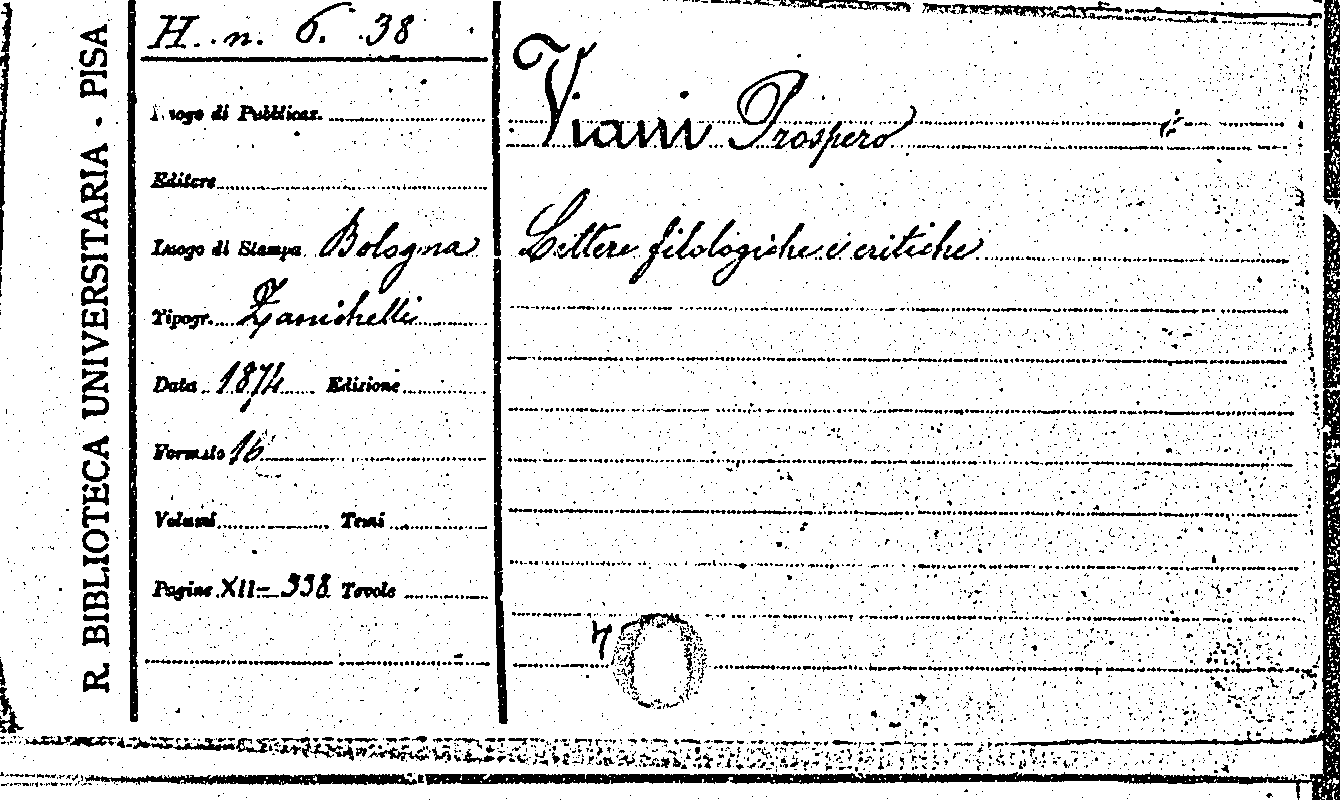 R. BIBLIOTECA UNIVERSITARIA - PISA
H. n. 6. 38
Luogo di Pubblicaz.
Editore
Luogo di Stampa Bologna
Tipogr. Zanichelli
Data 1874 Edizione
Formato 16
Volumi Tomi
Pagine XII-338 Tavole
Viani Prospero
Lettere filologiche e critiche